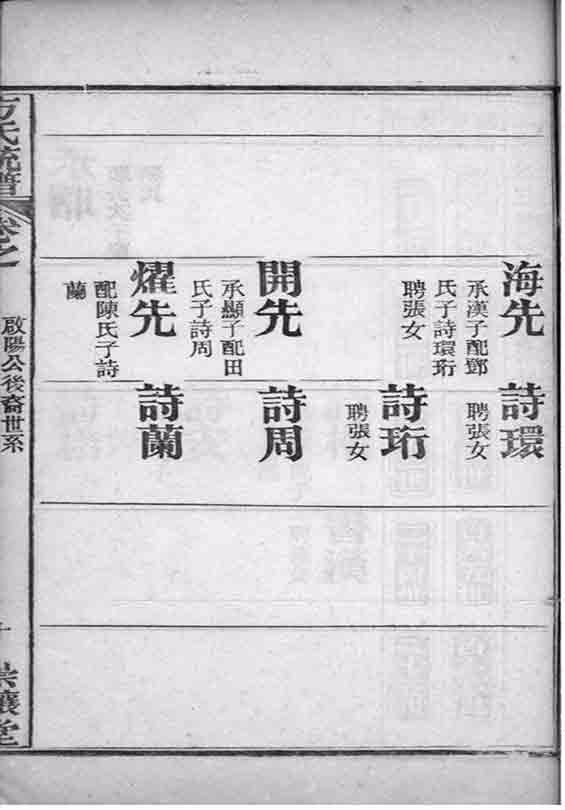 海先
承漢子配鄧
氏子詩環珩
聘張女
開先
承顯子配田
氏子詩周
燿先
配陳氏子詩
蘭
詩環
聘張女
詩珩
聘張女
詩周
詩蘭
方氏統譜
卷之
啟陽公後裔世系